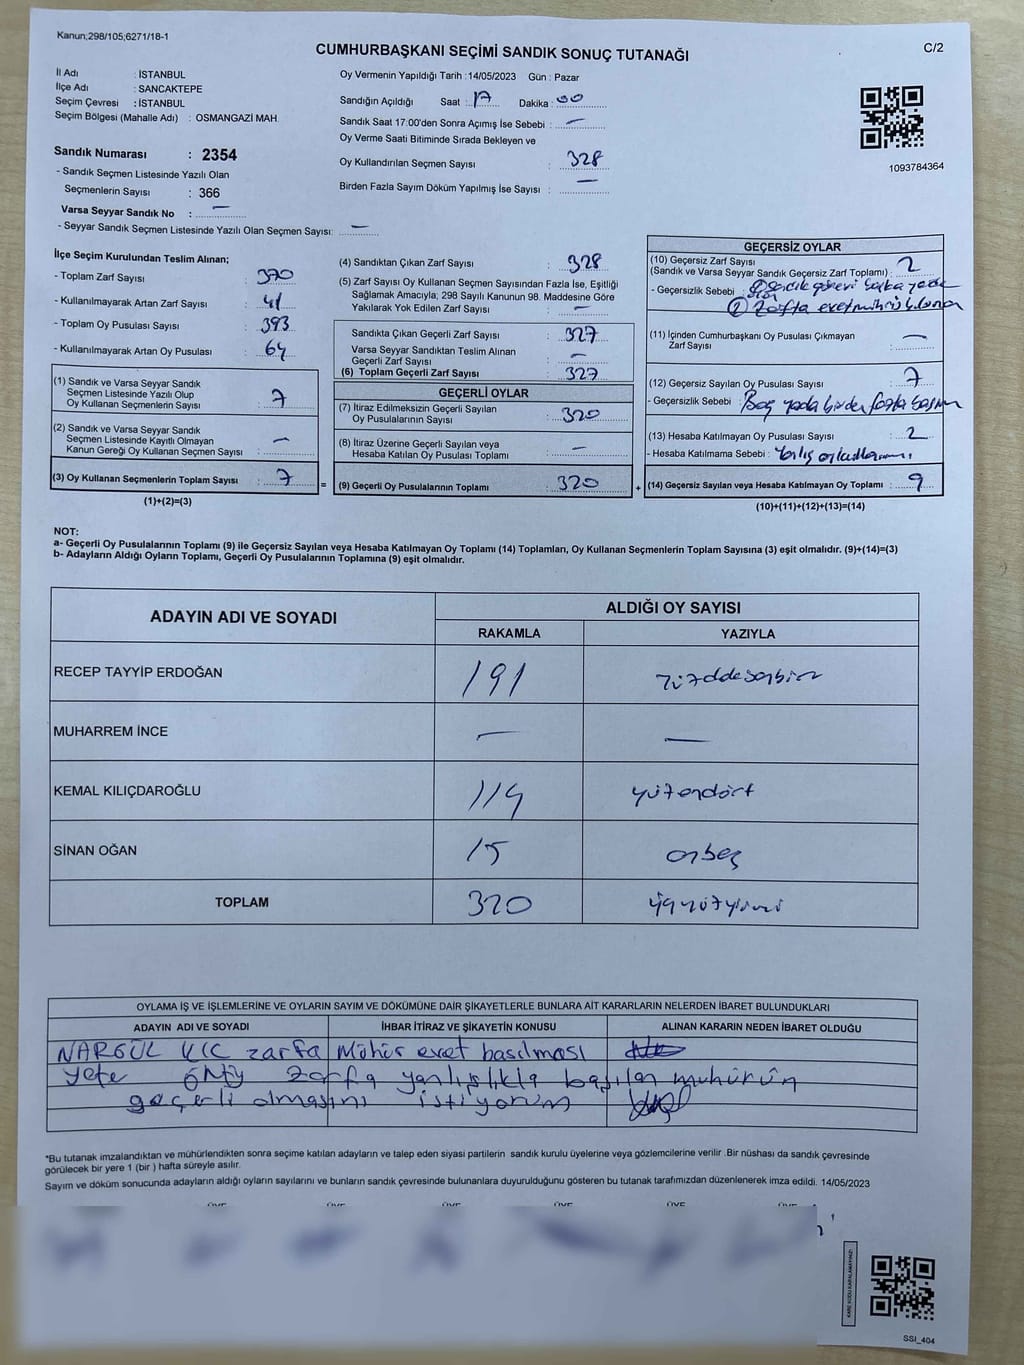 Kanun;298/105;6271/18-1
CUMHURBAŞKANI SEÇİMİ SANDIK SONUÇ TUTANAĞI
C/2
İl Adı : İSTANBUL
İlçe Adı : SANCAKTEPE
Seçim Çevresi : İSTANBUL
Seçim Bölgesi (Mahalle Adı) : OSMANGAZİ MAH.
Sandık Numarası : 2354
- Sandık Seçmen Listesinde Yazılı Olan
Seçmenlerin Sayısı : 366
Varsa Seyyar Sandık No : —
- Seyyar Sandık Seçmen Listesinde Yazılı Olan Seçmen Sayısı: —
Oy Vermenin Yapıldığı Tarih :14/05/2023 Gün : Pazar
Sandığın Açıldığı Saat : 17 Dakika : 00
Sandık Saat 17:00'den Sonra Açımış İse Sebebi : —
Oy Verme Saati Bitiminde Sırada Bekleyen ve
Oy Kullandırılan Seçmen Sayısı : 328
Birden Fazla Sayım Döküm Yapılmış İse Sayısı : —
1093784364
İlçe Seçim Kurulundan Teslim Alınan;
- Toplam Zarf Sayısı : 370
- Kullanılmayarak Artan Zarf Sayısı : 41
- Toplam Oy Pusulası Sayısı : 393
- Kullanılmayarak Artan Oy Pusulası : 64
(1) Sandık ve Varsa Seyyar Sandık
Seçmen Listesinde Yazılı Olup
Oy Kullanan Seçmenlerin Sayısı : 7
(2) Sandık ve Varsa Seyyar Sandık
Seçmen Listesinde Kayıtlı Olmayan
Kanun Gereği Oy Kullanan Seçmen Sayısı : —
(3) Oy Kullanan Seçmenlerin Toplam Sayısı : 7
(1)+(2)=(3)
=
(4) Sandıktan Çıkan Zarf Sayısı : 328
(5) Zarf Sayısı Oy Kullanan Seçmen Sayısından Fazla İse, Eşitliği
Sağlamak Amacıyla; 298 Sayılı Kanunun 98. Maddesine Göre
Yakılarak Yok Edilen Zarf Sayısı : —
Sandıkta Çıkan Geçerli Zarf Sayısı : 327
Varsa Seyyar Sandıktan Teslim Alınan
Geçerli Zarf Sayısı : —
(6) Toplam Geçerli Zarf Sayısı : 327
GEÇERLİ OYLAR
(7) İtiraz Edilmeksizin Geçerli Sayılan
Oy Pusulalarının Sayısı : 320
(8) İtiraz Üzerine Geçerli Sayılan veya
Hesaba Katılan Oy Pusulası Toplamı : —
(9) Geçerli Oy Pusulalarının Toplamı : 320
+
GEÇERSİZ OYLAR
(10) Geçersiz Zarf Sayısı
(Sandık ve Varsa Seyyar Sandık Geçersiz Zarf Toplamı) : 2
- Geçersizlik Sebebi : ① sandık görevi başka yerde
② Zarfta evet mührü
(11) İçinden Cumhurbaşkanı Oy Pusulası Çıkmayan
Zarf Sayısı —
(12) Geçersiz Sayılan Oy Pusulası Sayısı : 7
- Geçersizlik Sebebi : Boş yada birden fazla basım
(13) Hesaba Katılmayan Oy Pusulası Sayısı : 2
- Hesaba Katılmama Sebebi :
(14) Geçersiz Sayılan veya Hesaba Katılmayan Oy Toplamı : 9
(10)+(11)+(12)+(13)=(14)
NOT:
a- Geçerli Oy Pusulalarının Toplamı (9) ile Geçersiz Sayılan veya Hesaba Katılmayan Oy Toplamı (14) Toplamları, Oy Kullanan Seçmenlerin Toplam Sayısına (3) eşit olmalıdır. (9)+(14)=(3)
b- Adayların Aldığı Oyların Toplamı, Geçerli Oy Pusulalarının Toplamına (9) eşit olmalıdır.
ADAYIN ADI VE SOYADI
ALDIĞI OY SAYISI
RAKAMLA YAZIYLA
RECEP TAYYİP ERDOĞAN 191 yüzdoksanbir
MUHARREM İNCE — —
KEMAL KILIÇDAROĞLU 114 yüzondört
SİNAN OĞAN 15 onbeş
TOPLAM 320 üçyüzyirmi
OYLAMA İŞ VE İŞLEMLERİNE VE OYLARIN SAYIM VE DÖKÜMÜNE DAİR ŞİKAYETLERLE BUNLARA AİT KARARLARIN NELERDEN İBARET BULUNDUKLARI
ADAYIN ADI VE SOYADI İHBAR İTİRAZ VE ŞİKAYETİN KONUSU ALINAN KARARIN NEDEN İBARET OLDUĞU
NARGÜL zarfa Mühür evet basılması
yete zarfa yanlışlıkla basılan mühürün
geçerli olmasını istiyorum
*Bu tutanak imzalandıktan ve mühürlendikten sonra seçime katılan adayların ve talep eden siyasi partilerin sandık kurulu üyelerine veya gözlemcilerine verilir .Bir nüshası da sandık çevresinde
görülecek bir yere 1 (bir ) hafta süreyle asılır.
Sayım ve döküm sonucunda adayların aldığı oyların sayılarını ve bunların sandık çevresinde bulunanlara duyurulduğunu gösteren bu tutanak tarafımızdan düzenlenerek imza edildi. 14/05/2023
ÜYE ÜYE ÜYE ÜYE ÜYE ÜYE
KARE KODU KARALAMAYINIZ!
SSI_404